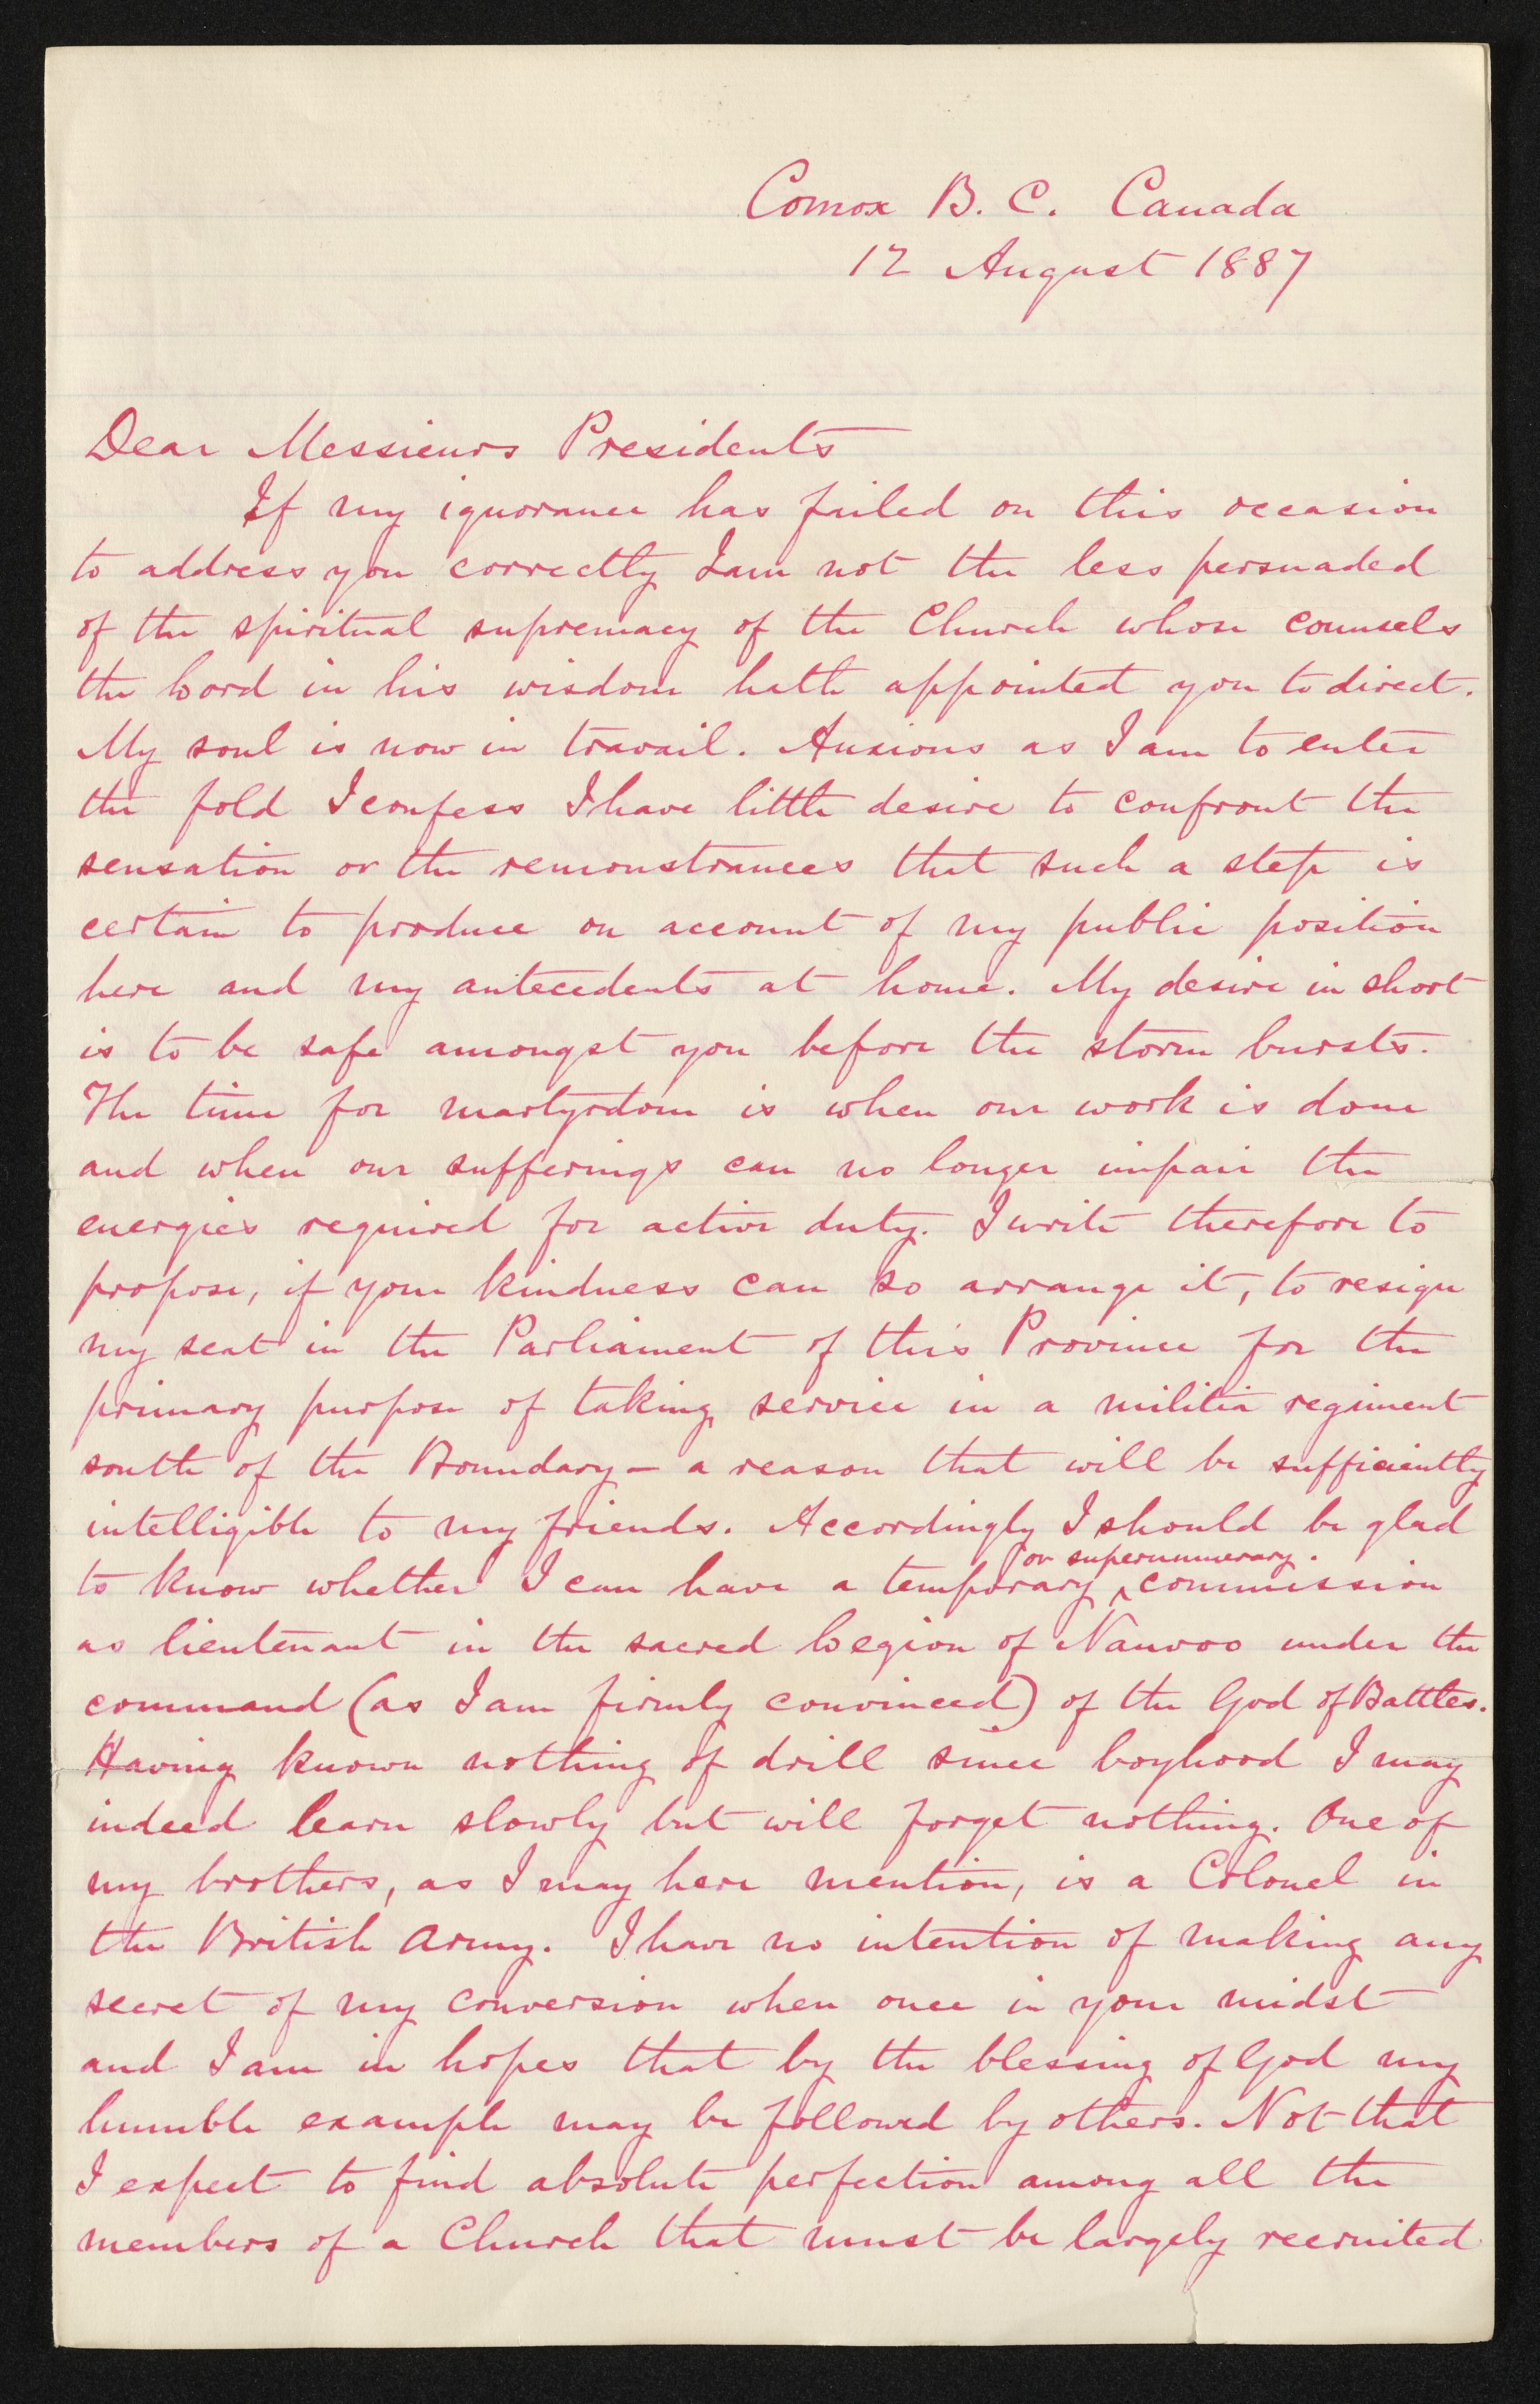 Comox B. C. Canada
12 August 1887
Dear Messieurs Presidents
If my ignorance has failed on this occasion
to address you correctly I am not the less persuaded
of the spiritual supremacy of the Church whose counsels
the Lord in his wisdom hath appointed you to direct.
My soul is now in travail. Anxious as I am to enter
the fold I confess I have little desire to confront the
sensation or the remonstrances that such a step is
certain to produce on account of my public position
here and my antecedents at home. My desire in short
is to be safe amongst you before the storm bursts.
The time for martyrdom is when our work is done
and when our sufferings can no longer impair the
energies required for active duty. I write therefore to
propose, if your kindness can so arrange it, to resign
my seat in the Parliament of this Province for the
primary purpose of taking service in a militia regiment
south of the Boundary - a reason that will be sufficiently
intelligible to my friends. Accordingly I should be glad
or supernumerary
to know whether I can have a temporary ^ commission
as lieutenant in the sacred Legion of Nauvoo under the
command (as I am firmly convinced) of the God of Battles.
Having known nothing of drill since boyhood I may
indeed learn slowly but will forget nothing. One of
my brothers, as I may here mention, is a Colonel in
the British army. I have no intention of making any
secret of my conversion when once in your midst
and I am in hopes that by the blessing of God my
humble example may be followed by others. Not that
I expect to find absolute perfection among all the
members of a Church that must be largely recruited